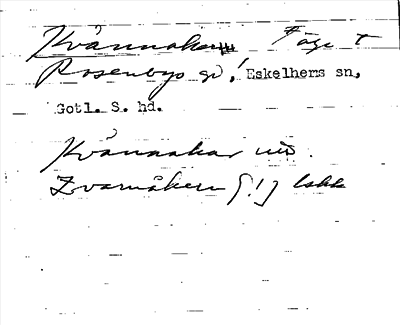 Kvännåkern Äga t
Rosenbys gd! Eskelhems sn,
Gotl. S. hd.
Kvännakar
Kvarnåkern [!] lskk